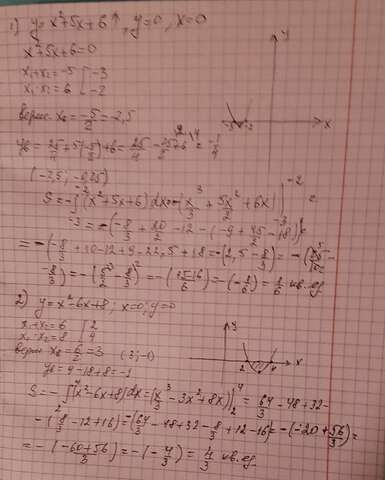 1) y = x² + 5x + 6 ↑, y = 0, x = 0
x² + 5x + 6 = 0
x₁ + x₂ = -5 [ -3
x₁ · x₂ = 6 [ -2
x₀ = -5/2 = -2,5
y₀ = 25/4 + 5(-5/2) + 6 = 25/4 - 25/2 + 6 = -1/4
(-2,5; -0,25)
S = -∫ (x² + 5x + 6) dx = -(x³/3 + 5x²/2 + 6x) | -2
-3 = -(-8/3 + 20/2 - 12 - (-9 + 45/2 - 18)) =
= -(-8/3 + 10 - 12 + 9 - 22,5 + 18 = -(2,5 - 8/3) =
-8/3) = -(5/2 - 8/3) = -(15-16/6) = -(-1/6) = 1/6 кв. ед
2) y = x² - 6x + 8; x = 0; y = 0
x₁ + x₂ = 6 [ 2
x₁ · x₂ = 8 [ 4
x₀ = 6/2 = 3 (3; -1)
y₀ = 9 - 18 + 8 = -1
S = -∫ (x² - 6x + 8) dx = (x³/3 - 3x² + 8x) | 4 2 = 64/3 - 48 + 32 -
- (8/3 - 12 + 16) = (64/3 - 48 + 32 - 8/3 + 12 - 16) = -(-20 + 56/3) =
= -(-60+56/3) = -(-4/3) = 4/3 кв. ед
y
x
-3
-2
y
x
2
4